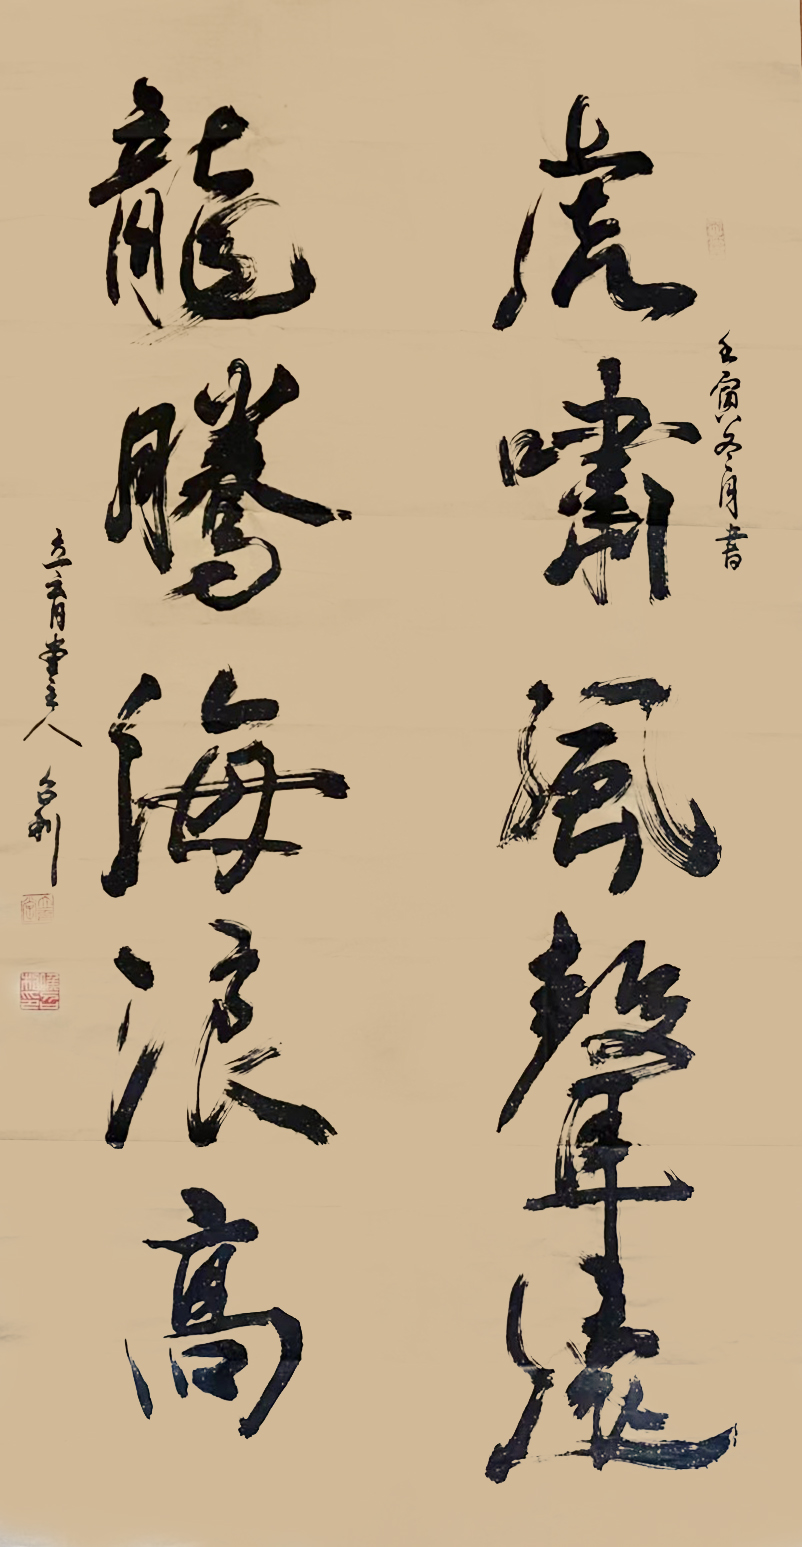 虎嘯風聲遠
壬寅冬月書
龍騰海浪高
主人